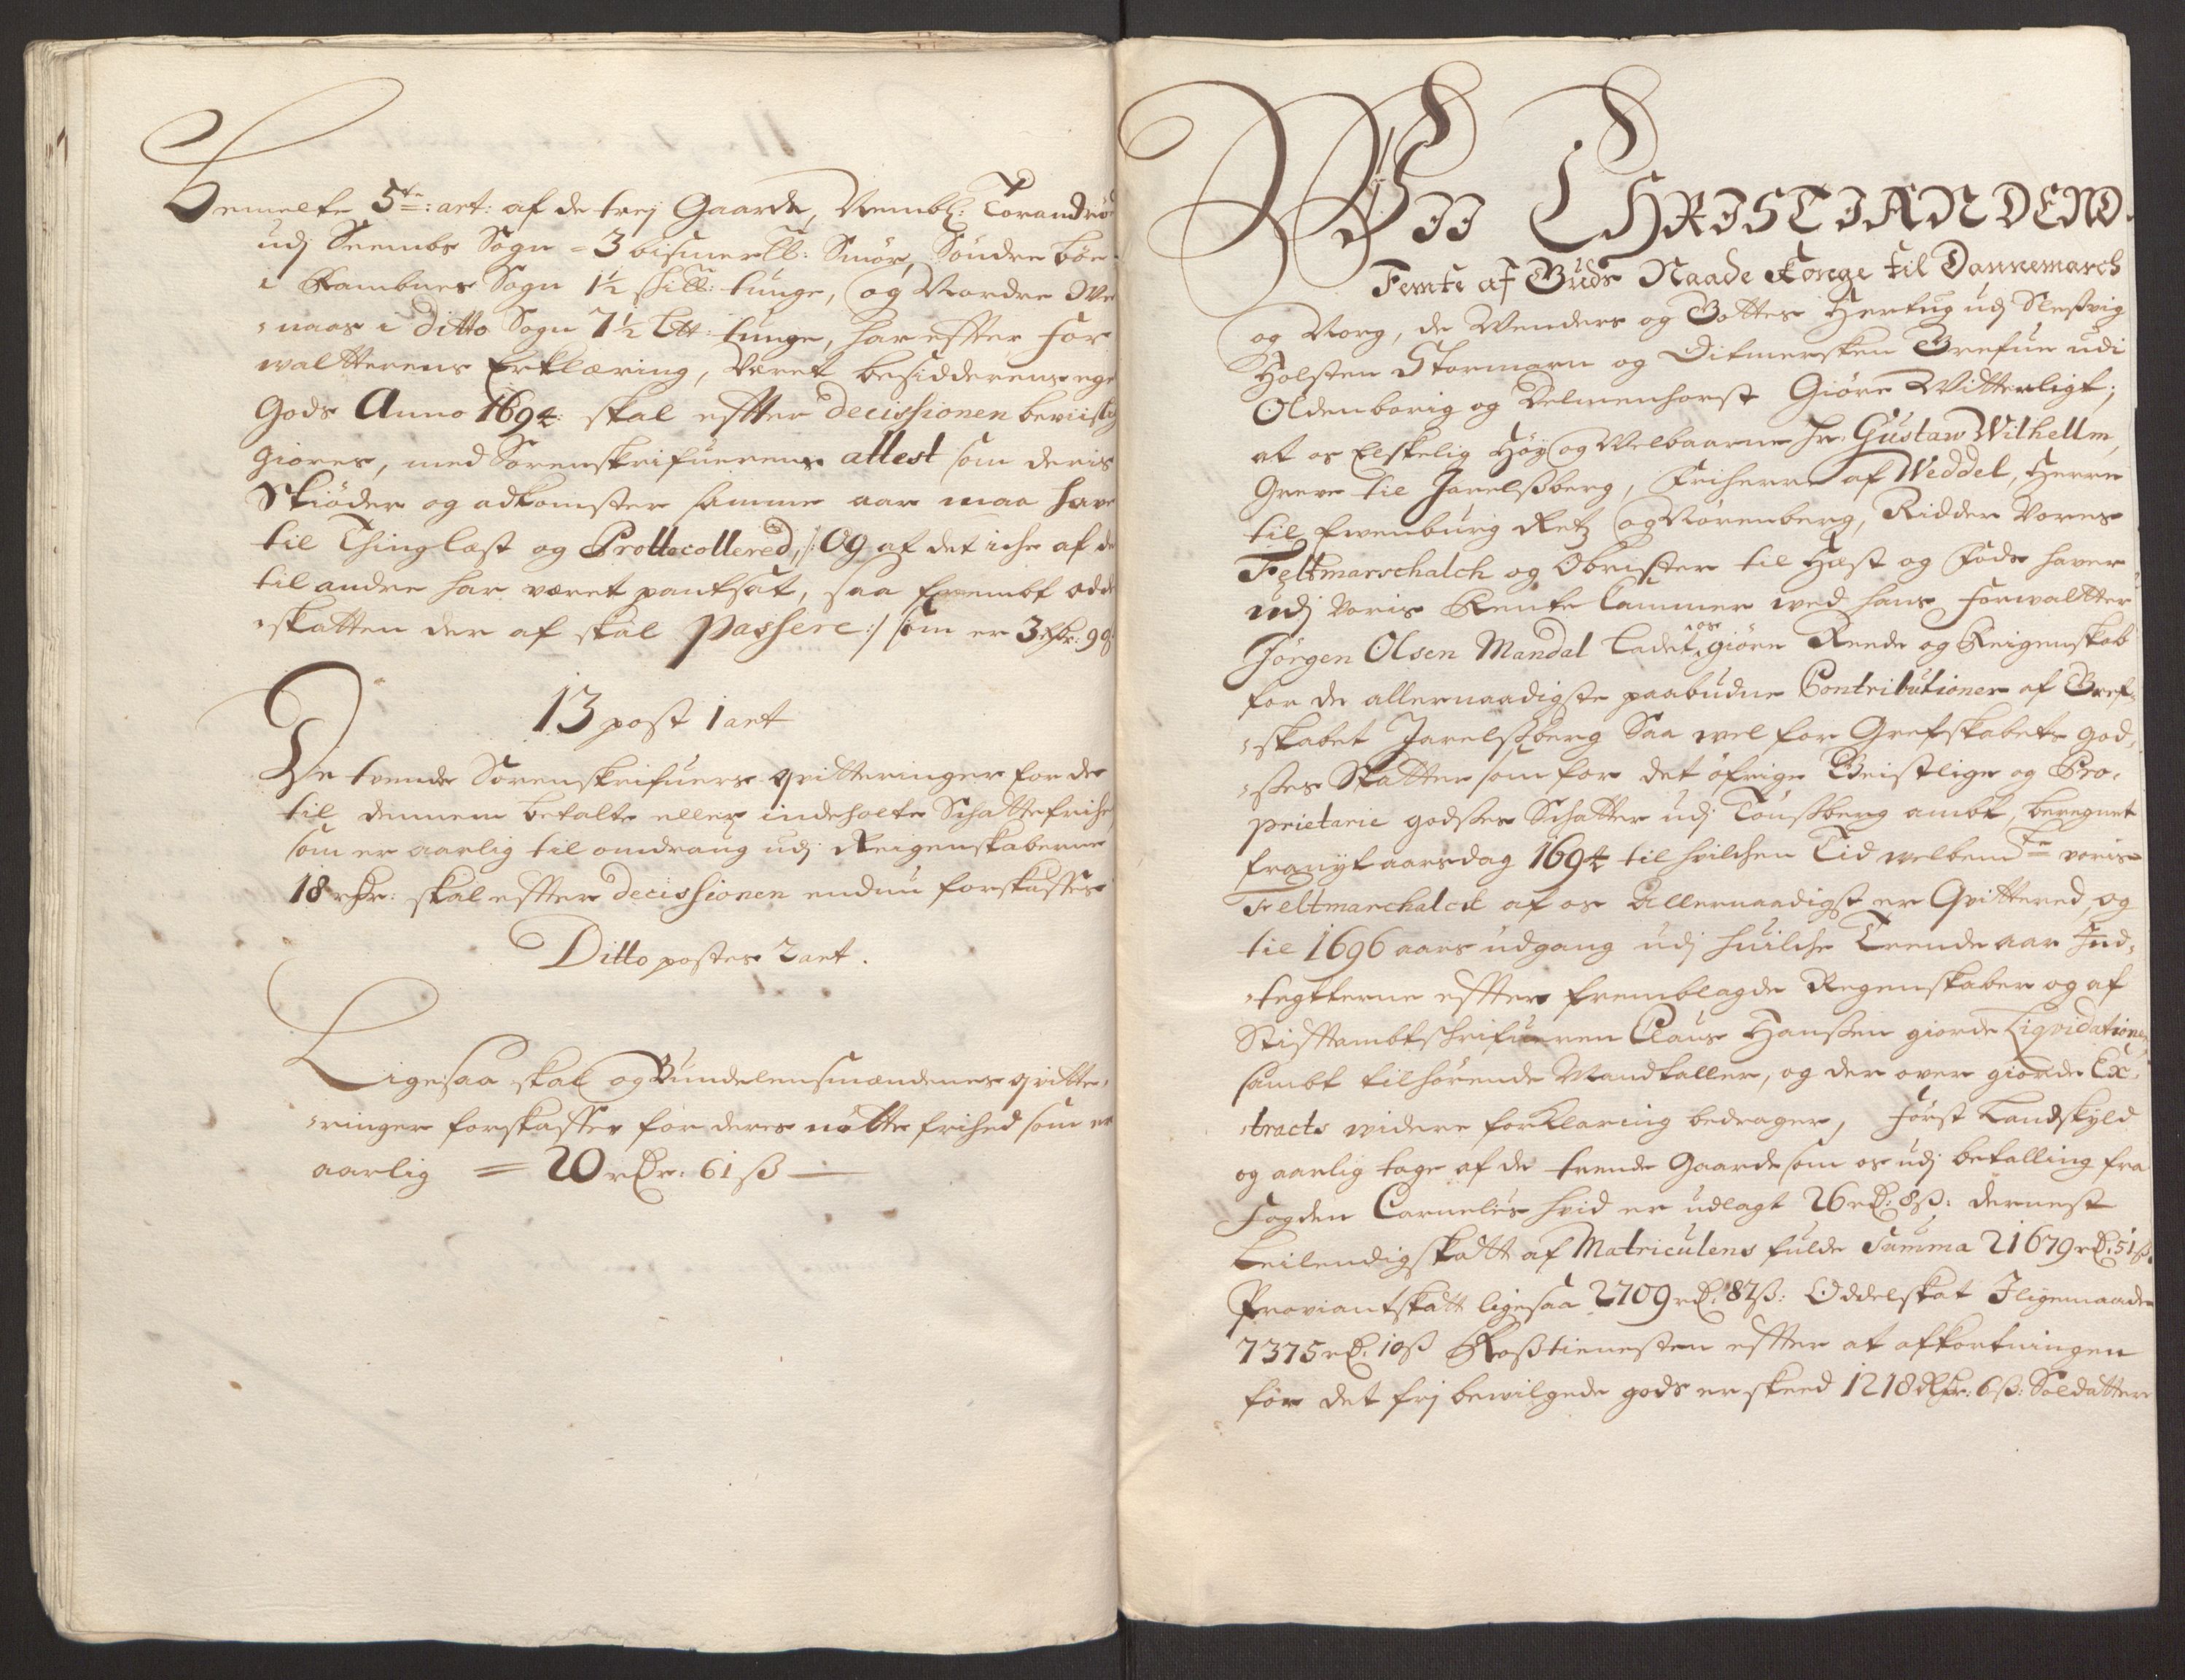 Bemelte 5te: art: af de trej Gaarde, Nembl: Torandrød
udj Sembs Sogn - 3 bismerlb: Smør, Søndre bøe
i Ramnes Sogn 1½ skill: tunge, og Nordre
naas i Ditto Sogn 7½ tunge, har effter For
waltterens Erklæring, Været besidderens eget
Gods Anno 1694: skal effter Decissionen beviislig
giøres, med Sorenskrifuerens attest som deris
Skiøder og adkomster samme aar maa have
til Thinglæst og Prottocollered, /: Og af det iche af de
til andre har været pantsat, saa frembt odel
skatten der af skal Passere :/ som er 3 rdr: 98
13 post 1 art
De tvende Sorenskrifuers qvitteringer for de
til dennem betalte eller indeholte Schattefrihed
som er aarlig til omdrang udj Reigenskaberne
18 rdr: skal effter Decissionen endnu forskaffes
Ditto postes 2 art.
Ligesaa skal og Bundelensmændenes qvitte-
ringer forskaffes for deres nøtte frihed som er
aarlig = 20 rdr: 61 ß —
Wii CHRISTIAN DEND
Femte af Guds Naade Konge til Dannemarch
og Norg, de Wenders og Gottes Hertug udj Slesvig
Holsten Stormarn og Ditmersken Grefue udi
Oldenborig og Delmenhorst Giøre Witterligt;
at os Elskelig Høy og Velbaarne Hr: Gustaw Wilhellm,
Greve til Jarelsberg, Friherre af Weddel, Herre
til Ewenburg Retz og Nørenberg, Ridder Vores
Feltmarschalch og Obrister til Hæst og Fods haver
udj Voris Rente Cammer wed hans Forwaltter
Jørgen Olsen Mandal ladet os giøre Reede og Reigenskab
for de allernaadigste paabudne Contributioner af Gref-
skabet Jarelsberg Saa wel for Grefskabets god-
ses Skatter som for det øfrige Geistlige og Pro-
prietarie godses Schatter udj Tønsberg ambt, beregnet
fra nytaarsdag 1694 til hvilchen Tid welbemte voris
Feltmarchalck af os Allernaadigst er Qvittered, og
til 1696 aars udgang udj huilche Trende aar Ind-
tegtterne effter fremblagde Regenskaber og af
Stifftambtschrifueren Claus Hansen giorde Liqvidationer
sambt tilhørende Mandtaller, og der over giorde Ex-
tracts widere forklaring bedrager, Først Landskyld
og aarlig tage af de trende Gaarde som os udj betalling fra
Fogden Cornelius hvid er udlagt 26 rd: 8 ß: dernest
Leilendigskatt af Matriculens fulde Summa 21679 rd: 51 ß.
Proviantskatt ligesaa 2709 rd: 87 ß: Oddelskat Iligemaade
7375 rd: 10 ß Rosstienesten effter at afkortningen
for det frj bewilgede gods er skeed 1218 Rdr: 6 ß: Soldatter